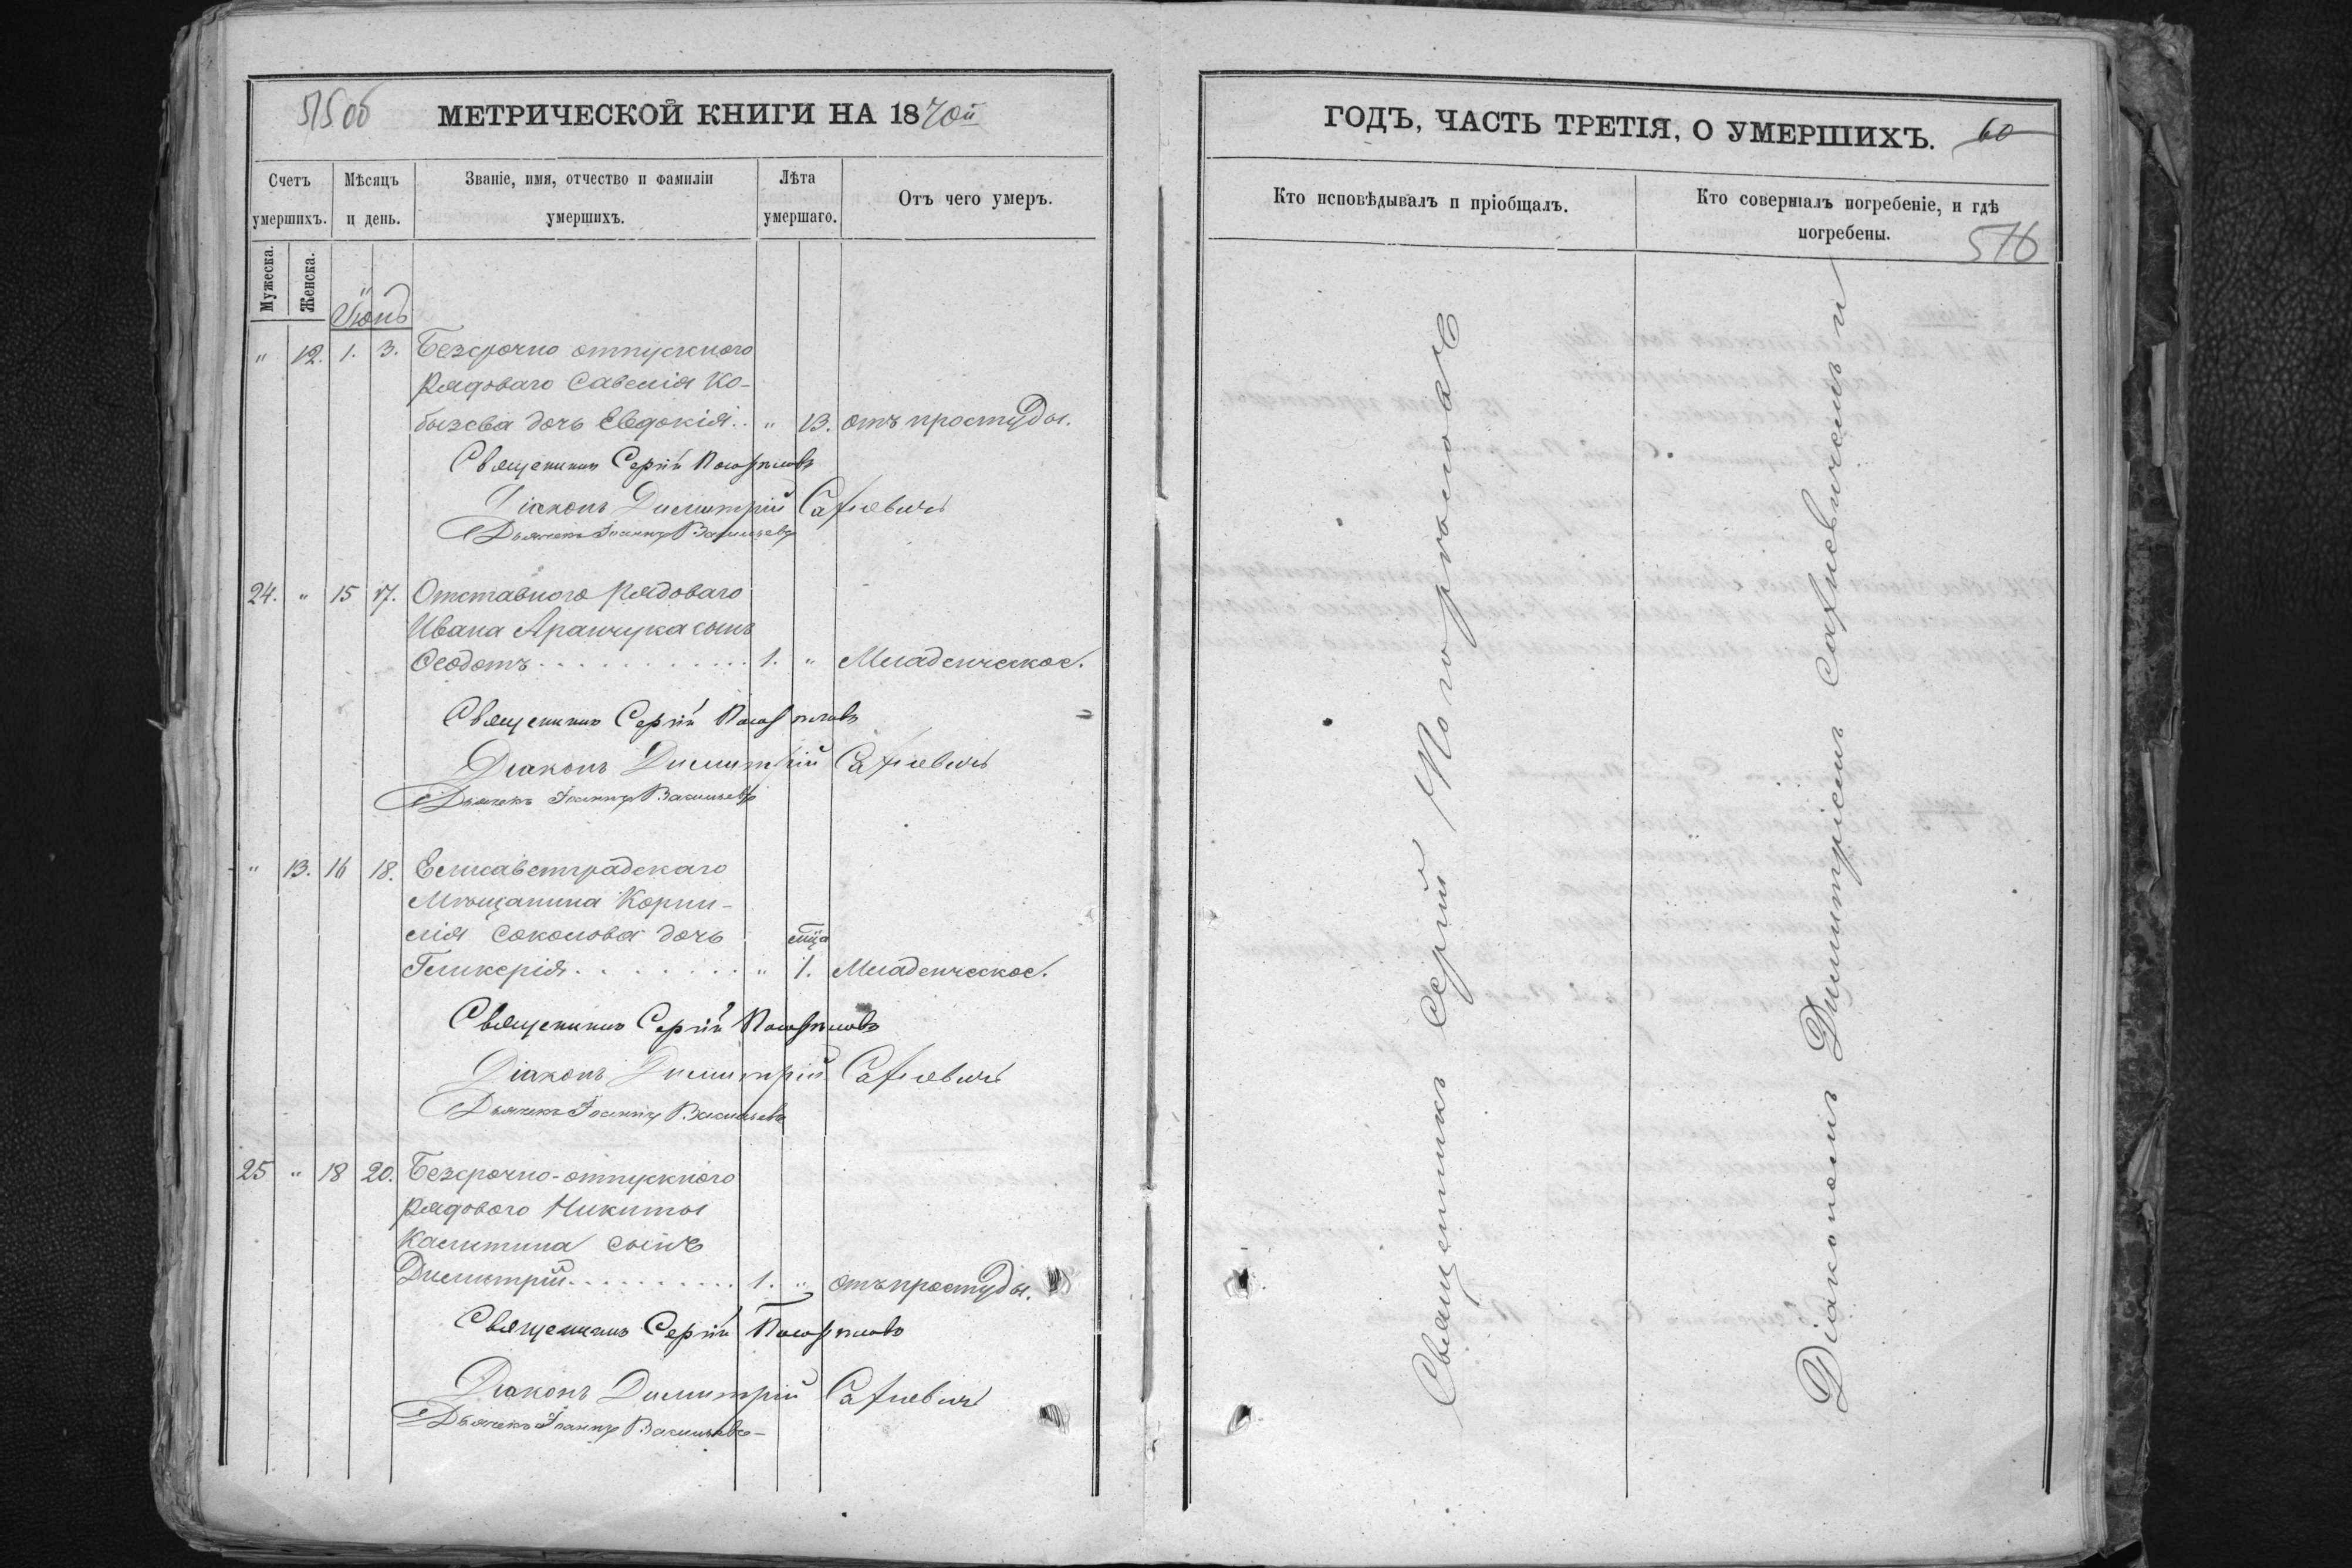 515 об
МЕТРИЧЕСКОЙ КНИГИ НА 1870й
Счетъ умершихъ.
Мѣсяцъ и день.
Званіе, имя, отчество и фамилія умершихъ.
Лѣта умершаго.
Отъ чего умеръ.
Мужеска.
Женска.
Іюнь
" 12. 1. 3. Безсрочно отпускного
Рядоваго Савелія Ко-
бызева дочь Евдокія.. " 13. отъ простуды.
Священникъ Сергій Погорѣловъ
Діаконъ Димитрій Сахневичъ
Дьячекъ Іоаннъ Васильевъ
24. " 15 17. Отставного Рядоваго
Ивана Аранчука сынъ
Ѳеодотъ............ 1. " Младенческое.
Священникъ Сергій Погорѣловъ
Діаконъ Димитрій Сахневичъ
Дьячекъ Іоаннъ Васильевъ
" 13. 16 18. Елисаветградскаго
Мѣщанина Корни-
лія Соколова дочь мца
Гликерія........ " 1. Младенческое.
Священникъ Сергій Погорѣловъ
Діаконъ Димитрій Сахневичъ
Дьячекъ Іоаннъ Васильевъ
25 " 18 20. Безсрочно-отпускного
Рядового Никиты
Калитина сынъ
Димитрій.......... 1. " отъ простуды.
Священникъ Сергій Погорѣловъ
Діаконъ Димитрій Сахневичъ
Дьячекъ Іоаннъ Васильевъ
ГОДЪ, ЧАСТЬ ТРЕТІЯ, О УМЕРШИХЪ. 60
Кто исповѣдывалъ и пріобщалъ.
Кто совершалъ погребеніе, и гдѣ
погребены.
516
Священникъ Сергій Погорѣловъ
Діакономъ Димитріемъ Сахневичемъ и